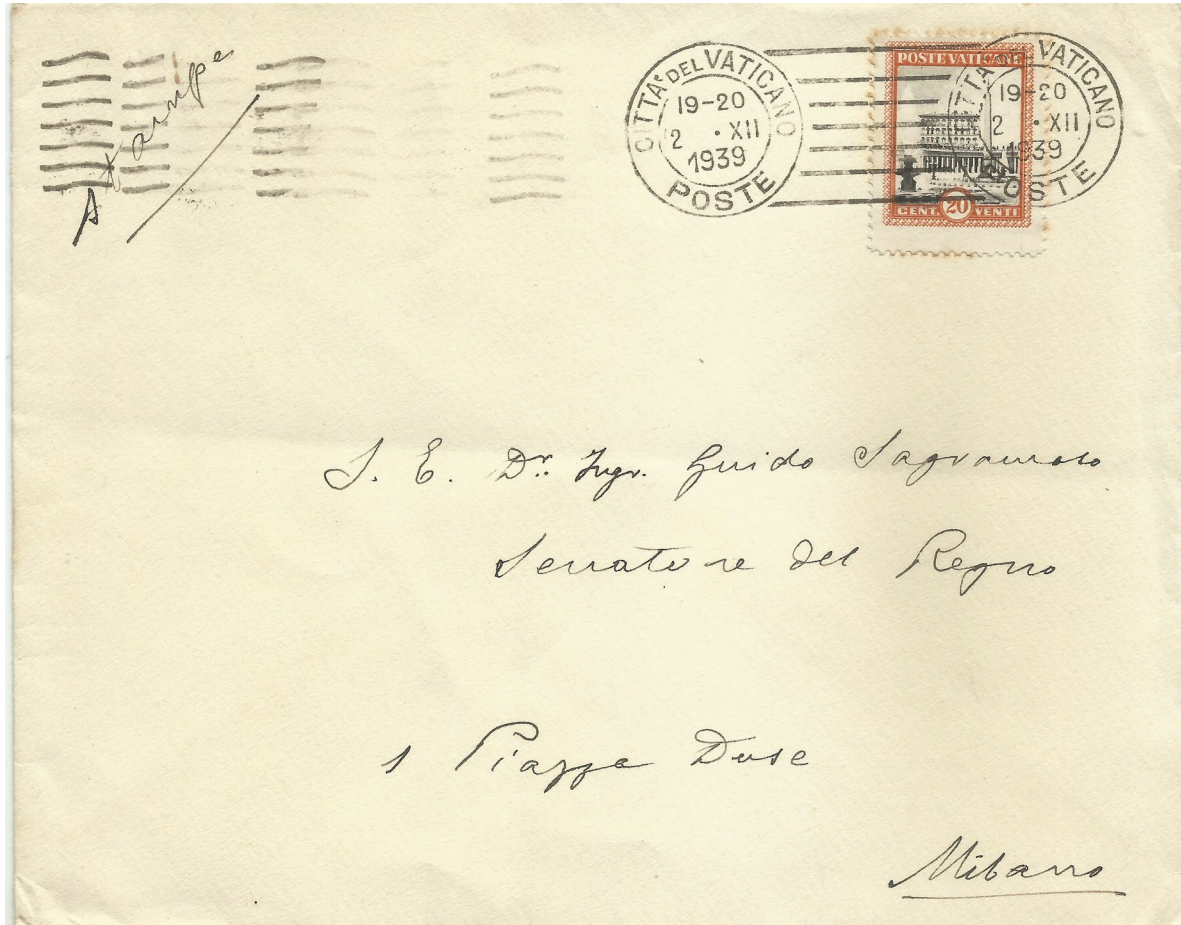 Stampe
CITTA' DEL VATICANO
19-20
2 • XII
1939
POSTE
POSTE VATICANE
CENT. 20 VENTI
CITTA' DEL VATICANO
19-20
2 • XII
1939
POSTE
S. E. Dr. Ingr. Guido Sagramoso
Senatore del Regno
1 Piazza Duse
Milano